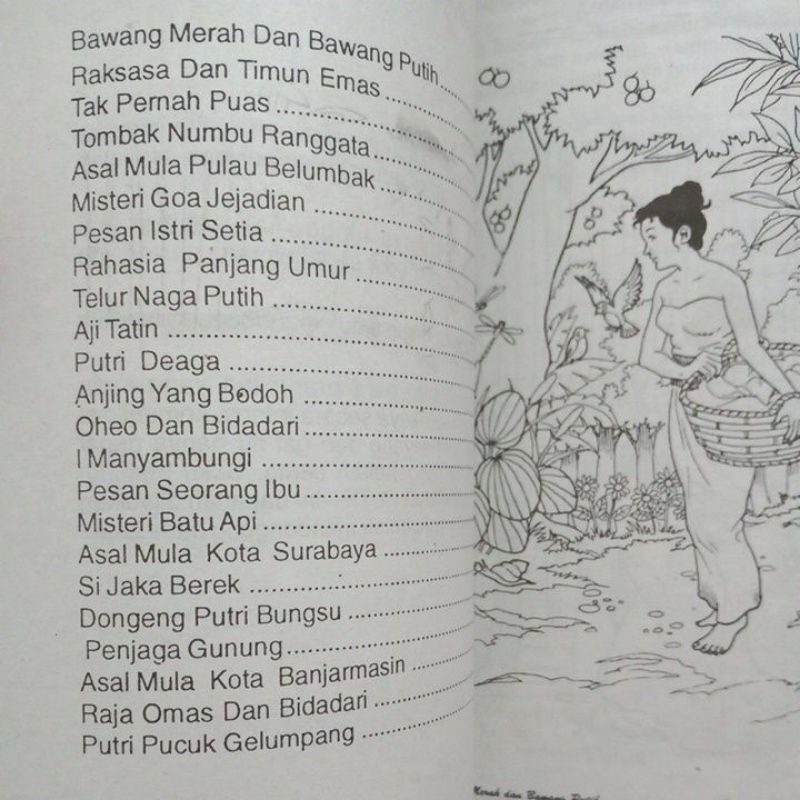 Bawang Merah Dan Bawang Putih....
Raksasa Dan Timun Emas ................
Tak Pernah Puas ....................................
Tombak Numbu Ranggata..................
Asal Mula Pulau Belumbak ................
Misteri Goa Jejadian ............................
Pesan Istri Setia ....................................
Rahasia Panjang Umur .....................
Telur Naga Putih ....................................
Aji Tatin ......................................................
Putri Deaga ............................................
Anjing Yang Bodoh ..............................
Oheo Dan Bidadari..............................
I Manyambungi .....................................
Pesan Seorang Ibu..............................
Misteri Batu Api.....................................
Asal Mula Kota Surabaya ................
Si Jaka Berek .......................................
Dongeng Putri Bungsu .......................
Penjaga Gunung.................................
Asal Mula Kota Banjarmasin ...........
Raja Omas Dan Bidadari ..................
Putri Pucuk Gelumpang ....................
Merah dan Bawang Putih